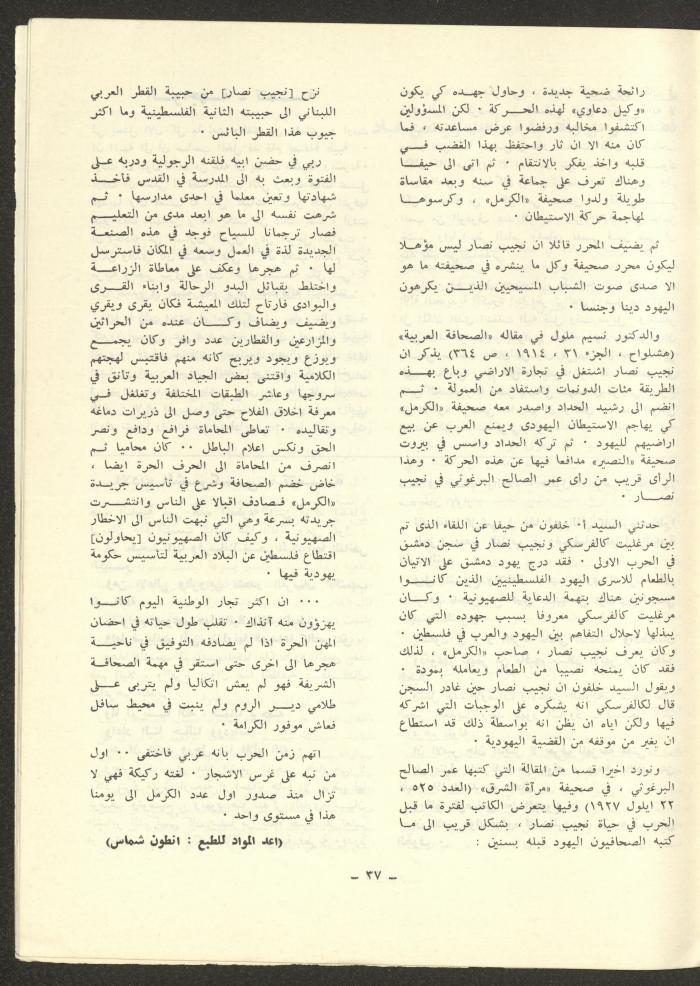 رائحة ضحية جديدة ، وحاول جهـــده كي يكون
«وكيل دعاوي» لهذه الحـــركة · لكن المسؤولين
اكتشفوا مخالبه ورفضوا عرض مساعدته ، فما
كان منه الا ان ثار واحتفظ بهذا الغضب فـــي
قلبه واخذ يفكر بالانتقام · ثم اتى الى حيفـا
وهناك تعرف على جماعة في سنه وبعد مقاساة
طويلة ولدوا صحيفة «الكرمل» ، وكرسوهـــا
لمهاجمة حركة الاستيطان ·
ثم يضيف المحرر قائلا ان نجيب نصار ليس مؤهـلا
ليكون محرر صحيفة وكل ما ينشره في صحيفته ما هو
الا صدى صوت الشباب المسيحيين الذيـــن يكرهون
اليهود دينا وجنسا ·
والدكتور نسيم ملول في مقاله «الصحافة العربية»
(هشلواح ، الجزء ٣١ ، ١٩١٤ ، ص ٣٦٤) يذكر ان
نجيب نصار اشتغل في تجارة الاراضي وباع بهـــذه
الطريقة مئات الدونمات واستفاد من العمولة · ثـــم
انضم الى رشيد الحداد واصدر معه صحيفة «الكرمل»
كي يهاجم الاستيطان اليهودي ويمنع العرب عن بيع
اراضيهم لليهود · ثم تركه الحداد واسس في بيروت
صحيفة «النصير» مدافعا فيها عن هذه الحركة · وهذا
الرأى قريب من رأى عمر الصالح البرغوثي في نجيب
نصـار ·
حدثني السيد أ· خلفون من حيفا عن اللقاء الذى تم
بين مرغليت كالفرسكي ونجيب نصار في سجن دمشق
في الحرب الاولى · فقد درج يهود دمشق على الاتيان
بالطعام للاسرى اليهود الفلسطينيين الذين كانـــوا
مسجونين هناك بتهمة الدعاية للصهيونية · وكـــان
مرغليت كالفرسكي معروفا بسبب جهوده التي كان
يبذلها لاحلال التفاهم بين اليهود والعرب في فلسطين ·
وكان يعرف نجيب نصار ، صاحب «الكرمل» ، لذلك
فقد كان يمنحه نصيبا من الطعام ويعامله بمودة ·
ويقول السيد خلفون ان نجيب نصار حين غادر السجن
قال لكالفرسكي انه يشكره على الوجبات التي اشركه
فيها ولكن اياه ان يظن انه بواسطة ذلك قد استطاع
ان يغير من موقفه من القضية اليهودية ·
ونورد اخيرا قسما من المقالة التي كتبها عمر الصالح
البرغوثي ، في صحيفة «مرآة الشرق» (العدد ٥٢٥ ،
٢٢ ايلول ١٩٢٧) وفيها يتعرض الكاتب لفترة ما قبل
الحرب في حياة نجيب نصار ، بشكل قريب الى مـا
كتبه الصحافيون اليهود قبله بسنين :
نزح [نجيب نصار] من حبيبة القطر العربي
اللبناني الى حبيبته الثانية الفلسطينية وما اكثر
جيوب هذا القطر البائس ·
ربي في حضن ابيه فلقنه الرجولية ودربه علـى
الفتوة وبعث به الى المدرسة في القدس فأخـــذ
شهادتها وتعين معلما في احدى مدارسها · ثـــم
شرهت نفسه الى ما هو ابعد مدى من التعليـــم
فصار ترجمانا للسياح فوجد في هذه الصنعـــة
الجديدة لذة في العمل وسعه في المكان فاسترسل
لها · ثم هجرها وعكف على معاطاة الزراعـــة
واختلط بقبائل البدو الرحالة وابناء القـــرى
والبوادى فارتاح لتلك المعيشة فكان يقرى ويقري
ويضيف ويضاف وكـــان عنده من الحراثين
والمزارعين والقطارين عدد وافر وكان يجمـــع
ويوزع ويجود ويربح كانه منهم فاقتبس لهجتهم
الكلامية واقتنى بعض الجياد العربية وتأنق في
سروجها وعاشر الطبقات المختلفة وتغلغل فـــي
معرفة اخلاق الفلاح حتى وصل الى ذريرات دماغه
وتقاليده · تعاطى المحاماة فرافع ودافع ونصر
الحق ونكس اعلام الباطل ·· كان محاميا ثـــم
انصرف من المحاماة الى الحرف الحرة ايضا ،
خاض خضم الصحافة وشرع في تأسيس جريـــدة
«الكرمل» فـصادف اقبالا على الناس وانتشـــرت
جريدته بسرعة وهي التي نبهت الناس الى الاخطار
الصهيونية ، وكيف كان الصهيونيون [يحاولون]
اقتطاع فلسطين عن البلاد العربية لتأسيس حكومة
يهودية فيها ·
··· ان اكثر تجار الوطنية اليوم كانـــوا
يهزؤون منه آنذاك · تقلب طول حياته في احضان
المهن الحرة اذا لم يصادفه التوفيق في ناحيـــة
هجرها الى اخرى حتى استقر في مهمة الصحافـــة
الشريفة فهو لم يعش اتكاليا ولم يتربى علـــى
طلامي ديـــر الروم ولم ينبت في محيط سافل
فعاش موفور الكرامة ·
اتهم زمن الحرب بانه عربي فاختفى ·· اول
من نبه على غرس الاشجار · لغته ركيكة فهي لا
تزال منذ صدور اول عدد الكرمل الى يومنا
هذا في مستوى واحد ·
(اعد المواد للطبع : انطون شماس)
– ٣٧ –